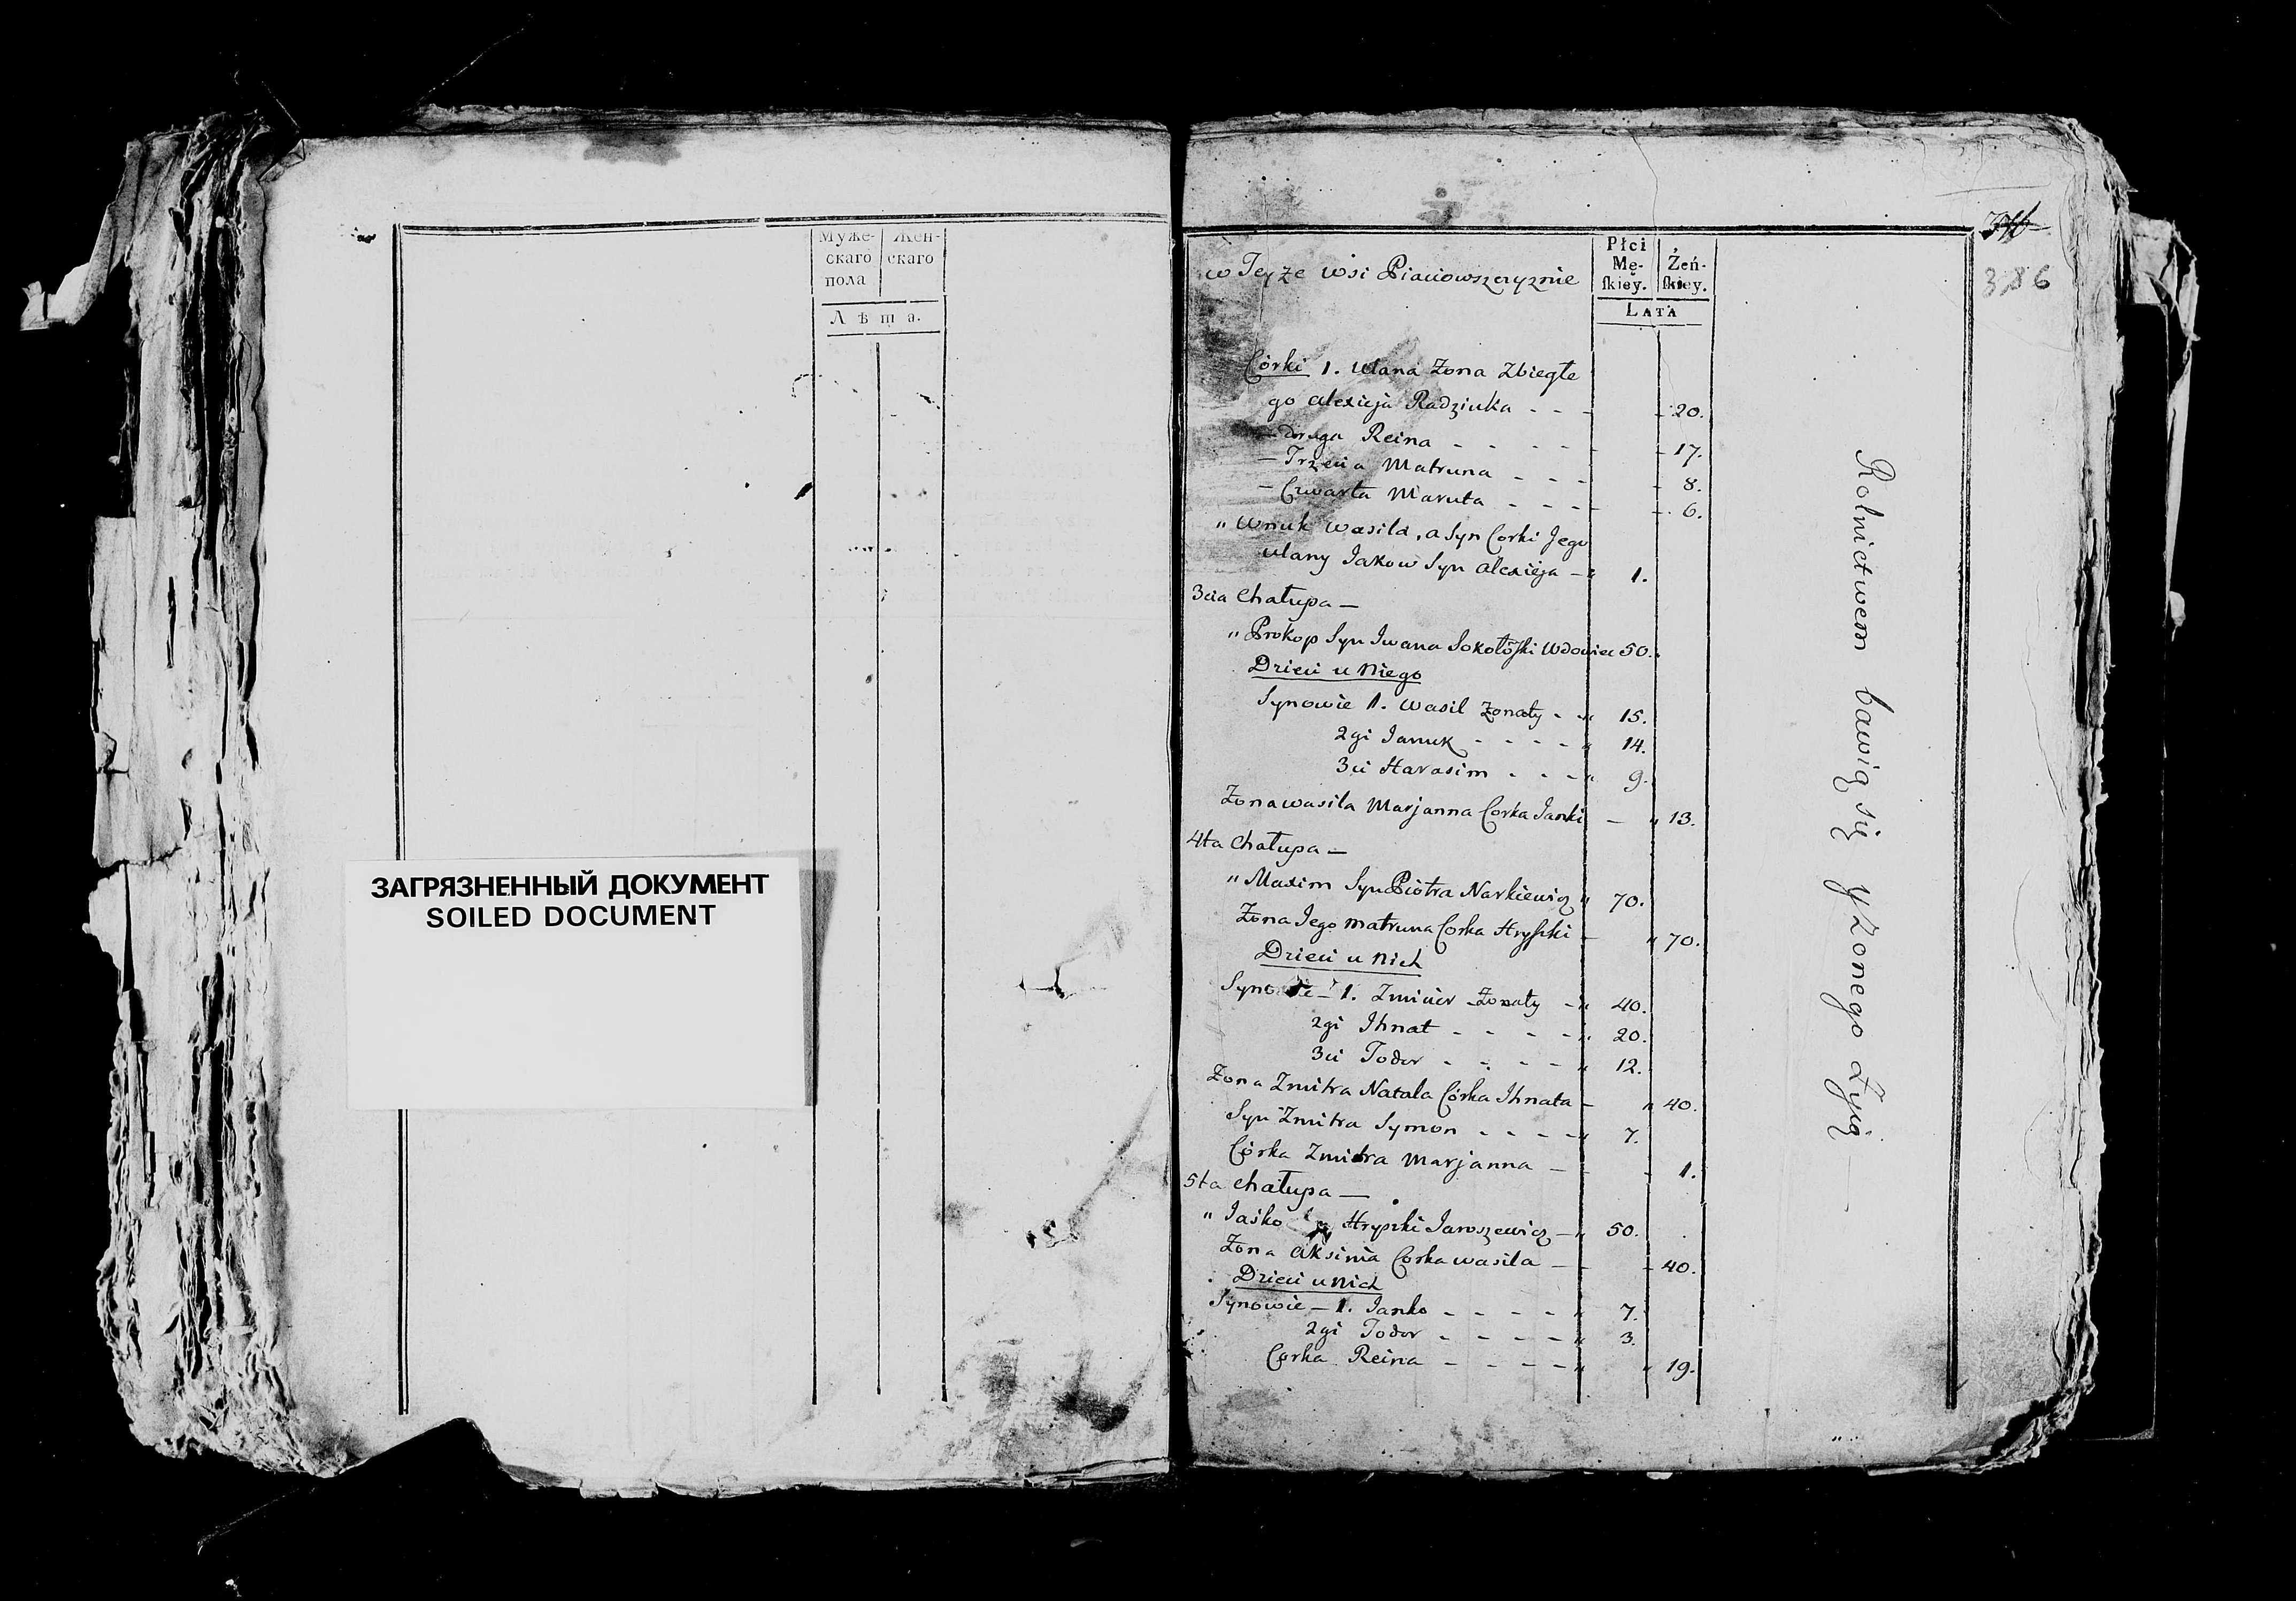 Муже-
скаго
пола
Жен-
скаго
Лѣта.
ЗАГРЯЗНЕННЫЙ ДОКУМЕНТ
SOILED DOCUMENT
386
w Teyże wsi
Płci
Mę-
ſkiey.
Żeń-
ſkiey.
LATA
Córki 1. Ulana Żona Zbiegłe
go Alexieja Radziuka - - - 20.
- druga Reina - - - - 17.
- Trzecia Matruna - - - 8.
- Czwarta Maruta - - - - 6.
" Wnuk Wasila, a Syn Corki Jego
Ulany Jakow Syn Alexieja - " 1.
3cia Chałupa -
" Prokop Syn Iwana Sokołoſki Wdowiec 50.
Dzieci u Niego
Synowie 1. Wasil Żonaty - " 15.
2gi Januk - - - - " 14.
3ci Harasim - - - " 9.
Żona Wasila Marjanna Corka Janki - " 13.
4ta Chałupa -
" Maxim Syn Piotra Narkiewicz " 70.
Żona Jego Matruna Corka Hryſzki - " 70.
Dzieci u Nich
Synowie - 1. Zmicier Żonaty - " 40.
2gi Ihnat - - - - " 20.
3ci Todor - - - - " 12.
Żona Zmitra Natala Córka Ihnata - " 40.
Syn Zmitra Symon - - - - " 7.
Córka Zmitra Marjanna - - - 1.
5ta Chałupa -
" Jaśko Hryszki Jaroszewicz - " 50.
Żona Aksinia Corka Wasila - - - 40.
Dzieci u Nich
Synowie - 1. Janko - - - - " 7.
2gi Todor - - - - " 3.
Corka Reina - - - - " " 19.
Rolnictwem bawią się y z onego Żyią -